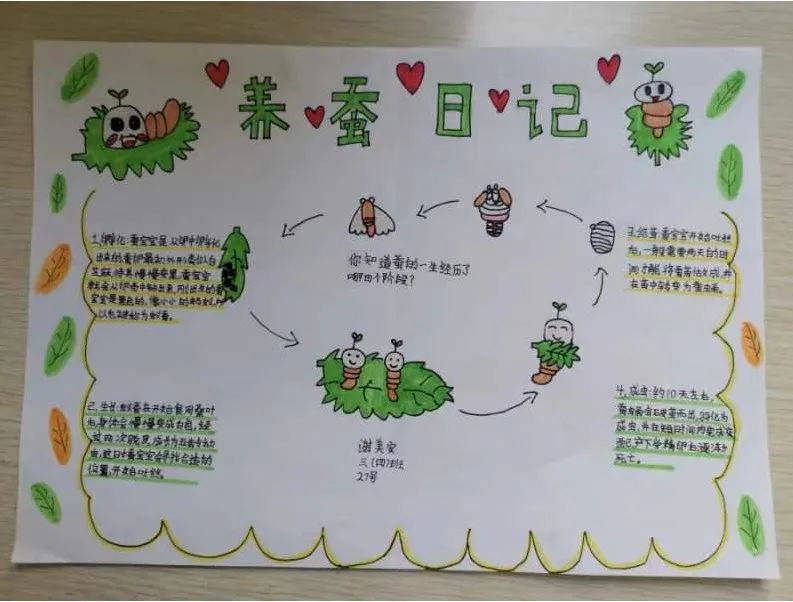 养蚕日记
1.孵化:蚕宝宝是从卵中孵化
出来的,蚕卵最初外形类似白
芝麻,待其慢慢变黑,蚕宝宝
就会从卵壳中钻出来,刚出生的蚕
宝宝是黑色的,像小小的蚂蚁,所
以也被称为蚁蚕。
你知道蚕的一生经历了
哪四个阶段?
3.结茧:蚕宝宝开始吐丝
后,一般需要两天的时
间才能将蚕茧结成,并
在茧中转变为蚕蛹。
2.生长:蚁蚕在开始食用桑叶
后,身体会慢慢变成白色,经
过四次脱皮成为五龄幼
虫,这时蚕宝宝会寻找合适的
位置,开始吐丝。
4.成虫:约10天左右,
蚕蛹会破茧而出,羽化为
成虫,并在短时间内完成交
配,产下受精卵后逐渐
死亡。
谢美安
三(四)班
27号